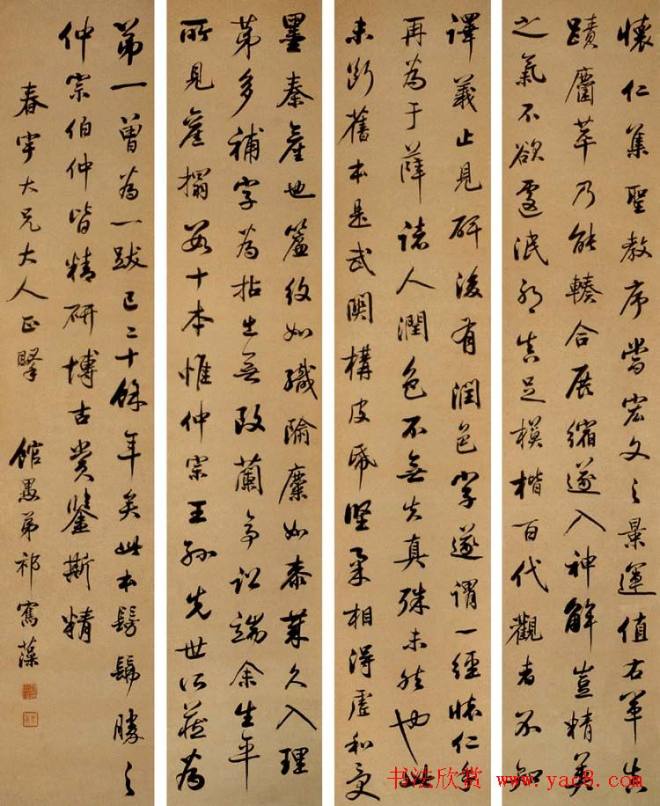 懷仁集聖教序當宏文之景運值右軍真
蹟麕萃乃能輳合展縮遂入神解豈精英
之氣不欲遽泯耶真足模楷百代觀者不知
譯義止見研後有潤色字遂謂一經懷仁手
再為于薛諸人潤色不無失真殊未然也此
未斷舊本是武關構皮紙堅柔相得虛和受
墨秦產也簾紋如織隃麋如泰業久入理
第多補字為拈出無改蘭亭訟端余生平
所見舊搨數十本惟仲宗王孫先世所藏為
第一曾為一跋已二十餘年矣此本髣髴勝之
仲宗伯仲皆精研博古賞鑒斯精
春宇大兄大人正腕 館愚弟祁寯藻
书法欣赏 www.yac8.com